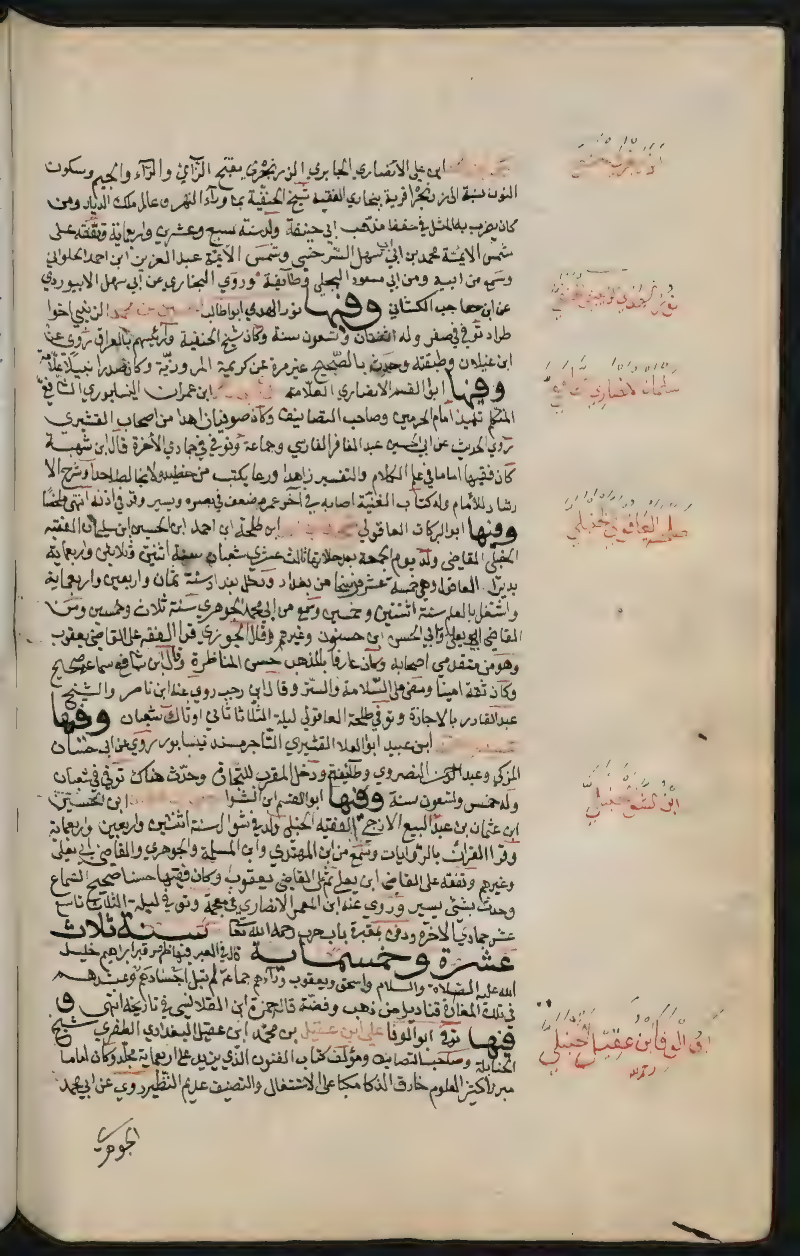 ابن علي الانصاري الجابري الزرنجري بفتح الزاي والراء والجيم وسكون
النون نسبة الى زرنجرا قرية ببخاري الفقيه شيخ الحنفية بما وراء النهر وعالم ملك الديار ومن
كان يضرب به المثل في حفظ مذهب ابي حنيفة ولد سنة سبع وعشرين واربعماية وتفقه على
شمس الايمة محمد بن ابي سهل السرخسي وشمس الايمة عبد العزيز ابن احمد الحلواني
وسمع من ابيه ومن ابي مسعود البجلي وطايفة وروي البخاري عن ابي سهل الابيوردي
عن ابن حاجب الكشاني وفيها نور الهدي ابو طالب الحسين بن محمد الزينبي اخوا
طراد توفي في صفر وله اثنتان وتسعون سنة وكان شيخ الحنفية ورئيسهم بالعراق روي عن
ابن غيلان وطبقته وحدث بالصحيح غير مرة عن كريمة المروذية وكان صدرا نبيلا علامة
وفيها ابو القسم الانصاري العلامة ابن عمران النيسابوري الشافعي
المتكلم تلميذ امام الحرمين وصاحب التصانيف وكان صوفيا زاهدا من اصحاب القشيري
روي الحديث عن ابي الحسين عبد الغافر الفارسي وجماعة وتوفي في جمادي الاخرة قال ابن شهبة
كان فقيها اماما في علم الكلام والتفسير زاهدا ورعا يكتب من خطه ولا يخالط احدا وشرح الا
رشاد للامام وله كتاب الغنية اصابه في آخر عمره ضعف في بصره ويسير وقر في اذنه انتهى ملخصا
وفيها ابو البركات العاقولي ابن طلحة ابن احمد ابن الحسين ابن سليمان الفقيه
الحنبلي القاضي ولد يوم الجمعة بعد صلاتها ثالث عشري شعبان سنة اثنتين وثلاثين واربعماية
بدير العاقول وهي خمسة عشر فرسخا من بغداد ودخل بغداد سنة ثمان واربعين واربعماية
واشتغل بالعلم سنة اثنتين وخمسين وسمع من ابي محمد الجوهري سنة ثلاث وخمسين ومن
القاضي ابي يعلي وابي الحسين ابن حسنون وغيرهم وقال ابن الجوزي قرا الفقه على القاضي يعقوب
وهو من متقدمي اصحابه وكان عارفا بالمذهب حسن المناظرة وقال ابن شافع سماعه صحيح
وكان ثقة امينا ومضى على السلامة والستر وقال ابن رجب روي عنه ابن ناصر والشيخ
عبد القادر بالاجازة وتوفي طلحة العاقولي ليلة الثلاثا ثاني او ثالث شعبان وفيها
ابن عبيد ابو العلا القشيري التاجر مسند نيسابور روي عن ابي حسان
المزكي وعبد الرحمن النصروي وطايفة ودخل المغرب للتجارة وحدث هناك توفي في شعبان
وله خمس وتسعون سنة وفيها ابو القسم ابن الشوا ابن الحسين
ابن عثمان بن عبد البيع الازجي الفقيه الحنبلي ولد في شوال سنة اثنتين واربعين واربعماية
وقرا القرآن بالروايات وسمع من ابن المهتدي وابن المسلمة والجوهري والقاضي ابي يعلى
وغيرهم وتفقه على القاضي ابن يعلى ثم على القاضي يعقوب وكان فقيها حسنا صحيح السماع
وحدث بشي يسير وروي عنه ابن المعمر الانصاري في معجمه وتوفي ليلة الثلاثا تاسع
عشر جمادي الاخرة ودفن بمقبرة باب حرب رحمه الله تعا سنة ثلاث
عشرة وخمسماية قال في العبر فيها ظهر قبر ابراهيم خليل
الله عليه الصلاة والسلام واسحق ويعقوب ورآهم جماعة لم تبل اجسادهم وعندهم
في تلك المغارة قناديل من ذهب وفضة قاله حمزة ابن القلانسي في تاريخه انتهى و
فيها توفي ابو الوفا علي ابن عقيل بن محمد ابن عقيل البغدادي الظفري شيخ
الحنابلة وصاحب التصانيف ومؤلف كتاب الفنون الذي يزيد على اربعماية مجلد وكان اماما
مبرزا كثير العلوم خارق الذكا مكبا على الاشتغال والتصنيف عديم النظير روي عن ابي محمد
الجوهري
نور الهدي الزينبي الحنفي
سلمان الانصاري
طلحة العاقولي الحنبلي
ابن الشوا حنبلي
ابو الوفا ابن عقيل الحنبلي
رحمه الله